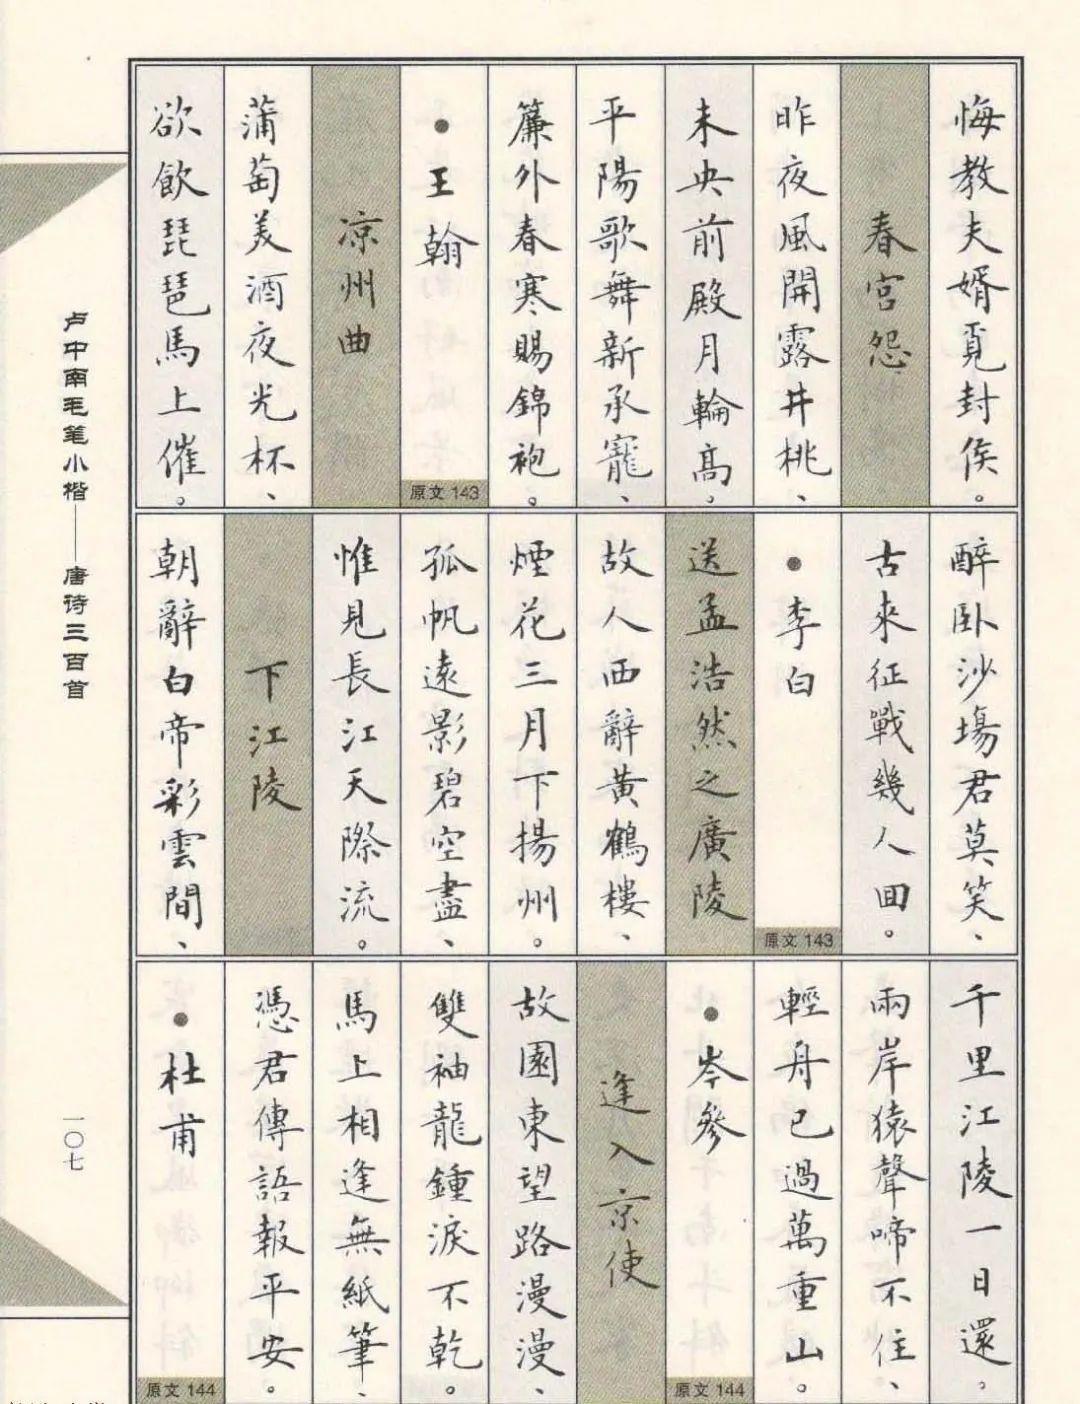 悔教夫婿覓封侯。
春宮怨
昨夜風開露井桃、
未央前殿月輪高。
平陽歌舞新承寵、
簾外春寒賜錦袍。
●王翰
原文 143
凉州曲
蒲萄美酒夜光杯、
欲飲琵琶馬上催。
醉卧沙場君莫笑、
古來征戰幾人回。
●李白
原文 143
送孟浩然之廣陵
故人西辭黃鶴樓、
煙花三月下揚州。
孤帆遠影碧空盡、
惟見長江天際流。
下江陵
朝辭白帝彩雲間、
千里江陵一日還。
兩岸猿聲啼不住、
輕舟已過萬重山。
●岑參
原文 144
逢入京使
故園東望路漫漫、
雙袖龍鍾淚不乾。
馬上相逢無紙筆、
憑君傳語報平安。
●杜甫
原文 144
卢中南毛笔小楷——唐诗三百首
一〇七